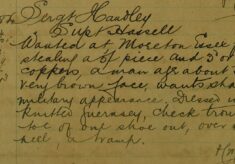 Sergt Handley
Supt Hassell
Wanted at Moreton Essex
stealing a 6d piece and 3d of
coppers, a man age about
very brown face, wants sha
military appearance, Dressed in
Knitted guernsey, check trou
toe of one shoe out, over
heel, a tramp.